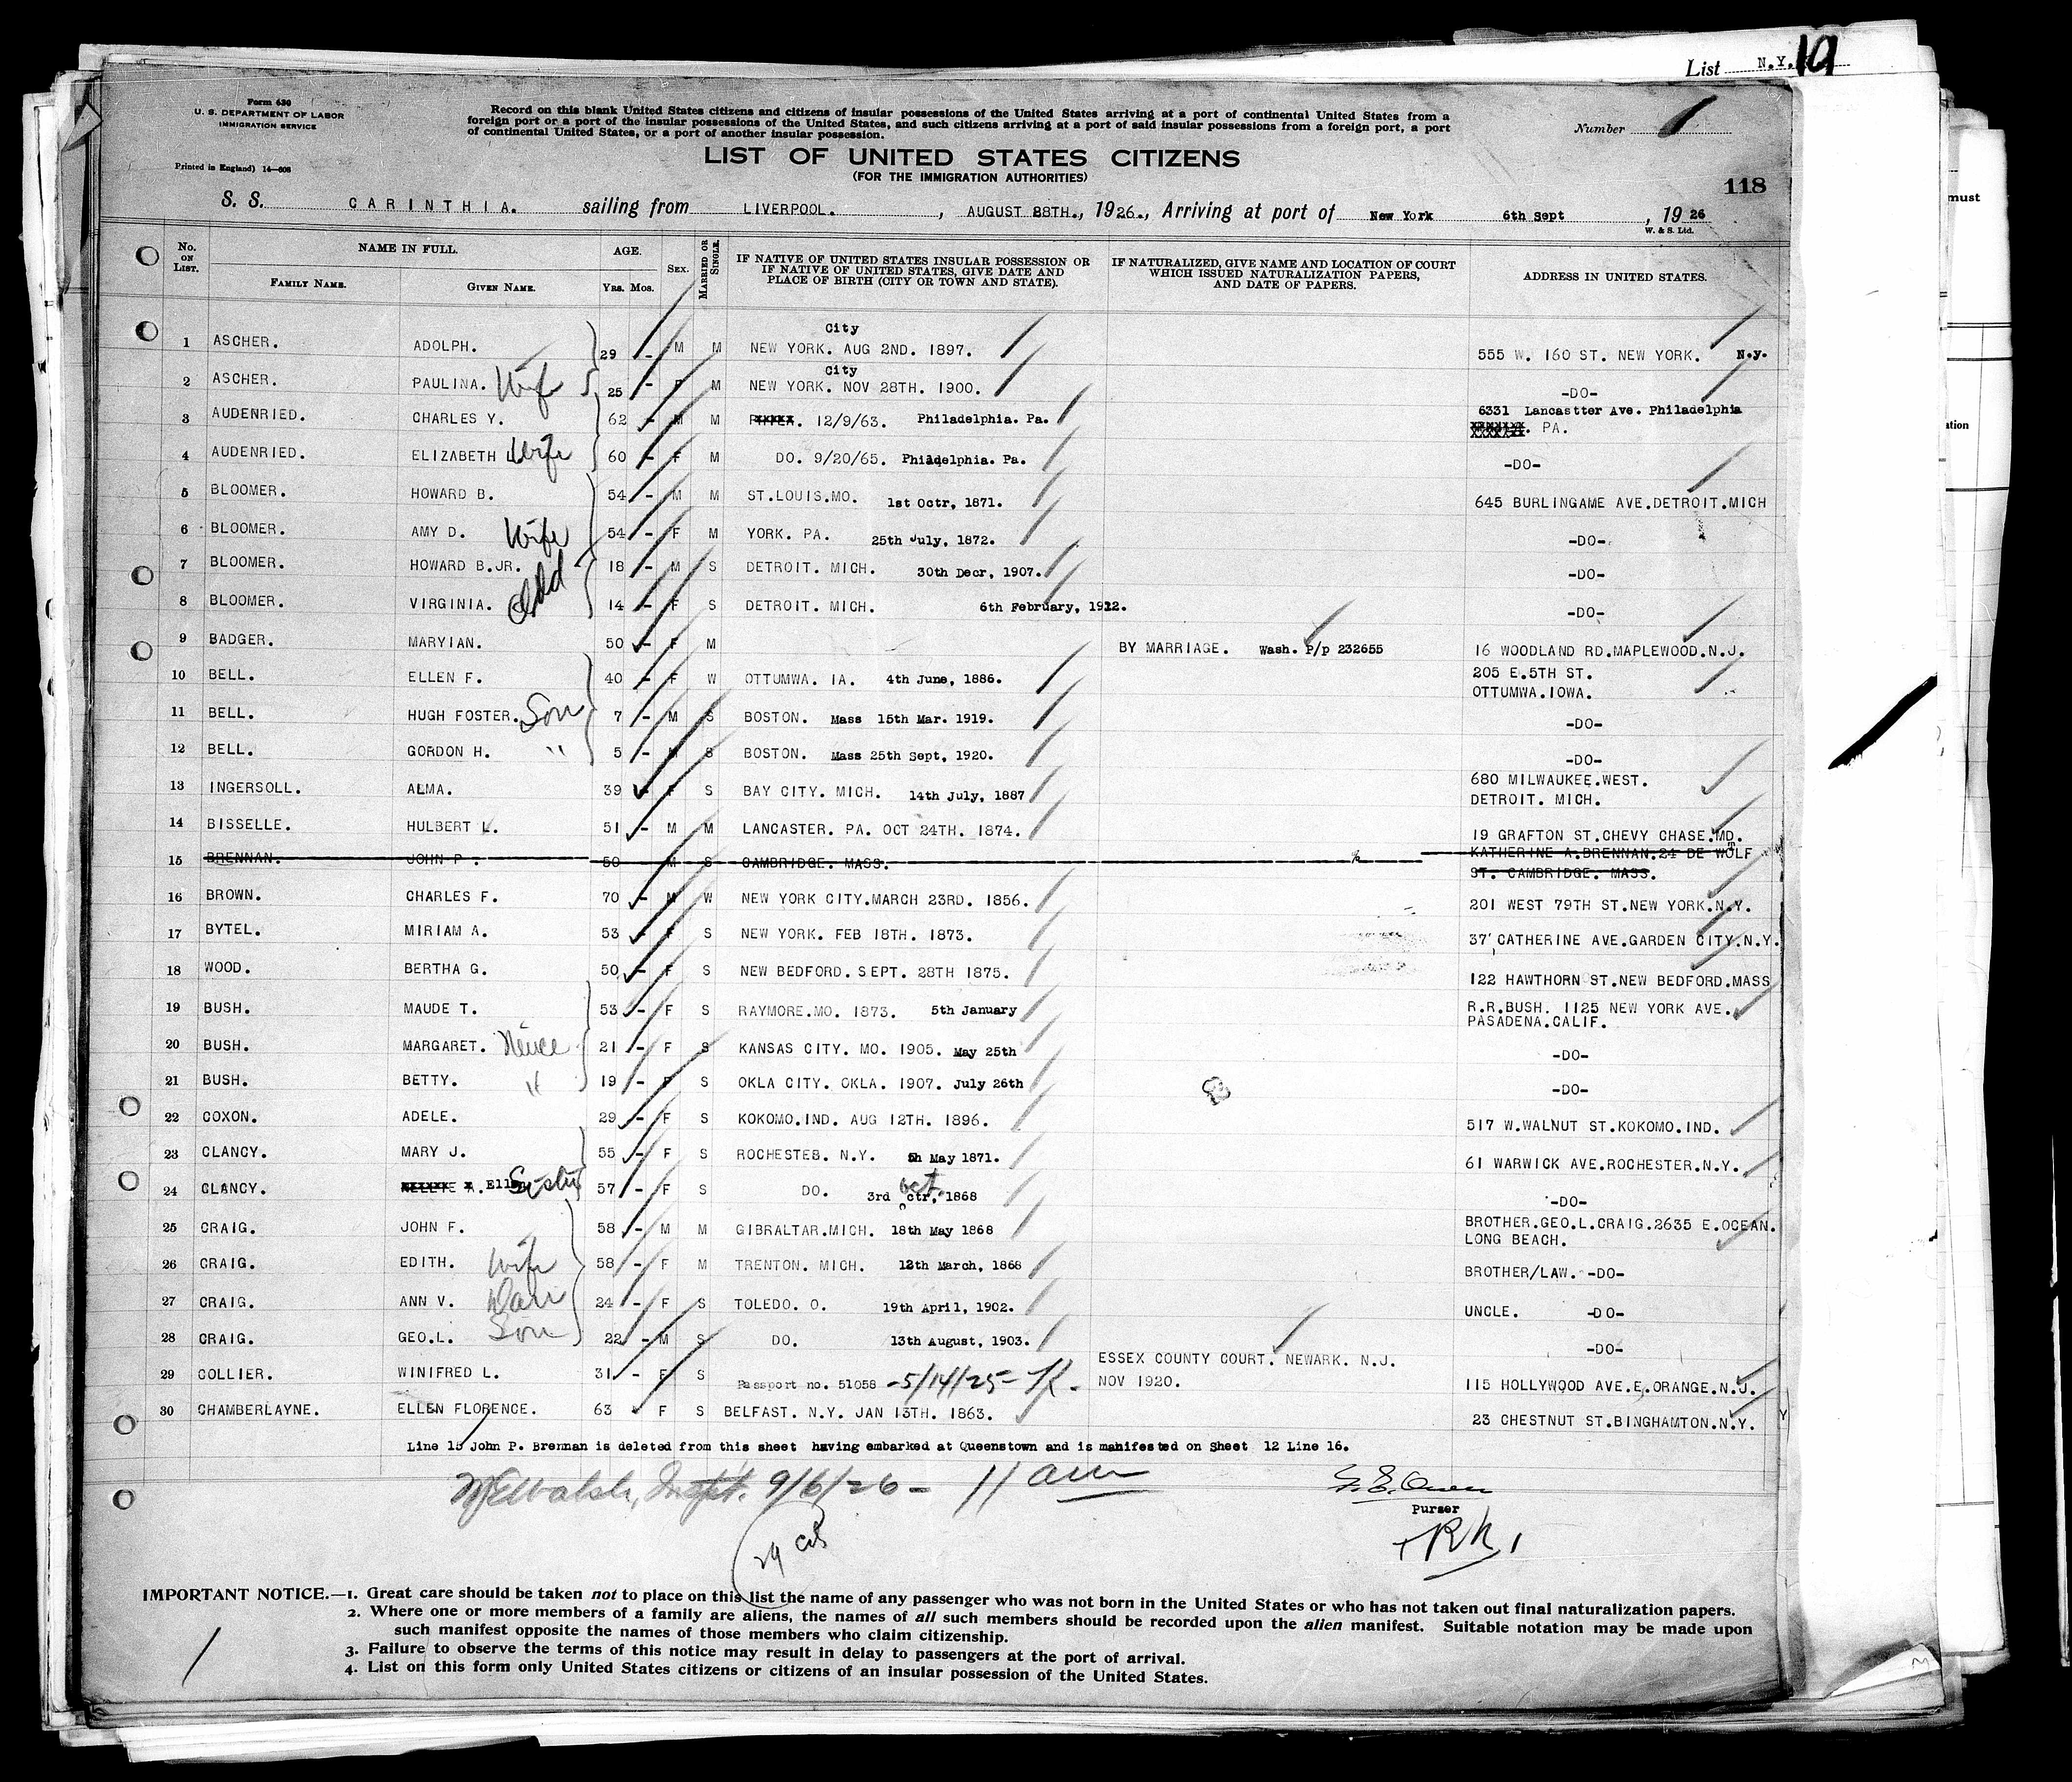 List N.Y. 19
Form 630
U. S. DEPARTMENT OF LABOR
IMMIGRATION SERVICE
Printed in England) 14—608
Record on this blank United States citizens and citizens of insular possessions of the United States arriving at a port of continental United States from a
foreign port or a port of the insular possessions of the United States, and such citizens arriving at a port of said insular possessions from a foreign port, a port
of continental United States, or a port of another insular possession.
Number 1
LIST OF UNITED STATES CITIZENS
(FOR THE IMMIGRATION AUTHORITIES)
118
S. S. CARINTHIA. sailing from LIVERPOOL. , AUGUST 28TH., 1926., Arriving at port of New York 6th Sept , 19 26
W. & S. Ltd.
No. ON LIST. NAME IN FULL. FAMILY NAME. GIVEN NAME. AGE. Yrs. Mos. SEX. MARRIED OR SINGLE. IF NATIVE OF UNITED STATES INSULAR POSSESSION OR IF NATIVE OF UNITED STATES, GIVE DATE AND PLACE OF BIRTH (CITY OR TOWN AND STATE). IF NATURALIZED, GIVE NAME AND LOCATION OF COURT WHICH ISSUED NATURALIZATION PAPERS, AND DATE OF PAPERS. ADDRESS IN UNITED STATES.
City
1 ASCHER. ADOLPH. 29 - M M NEW YORK. AUG 2ND. 1897. 555 W. 160 ST. NEW YORK. N.y.
City
2 ASCHER. PAULINA. Wife 25 - F M NEW YORK. NOV 28TH. 1900. -DO-
3 AUDENRIED. CHARLES Y. 62 - M M 12/9/63. Philadelphia. Pa. 6331 Lancastter Ave. Philadelphia
PA.
4 AUDENRIED. ELIZABETH L. Wife 60 - F M DO. 9/20/65. Philadelphia. Pa. -DO-
5 BLOOMER. HOWARD B. 54 - M M ST.LOUIS.MO. 1st Octr, 1871. 645 BURLINGAME AVE.DETROIT.MICH
6 BLOOMER. AMY D. Wife 54 - F M YORK. PA. 25th July, 1872. -DO-
7 BLOOMER. HOWARD B.JR. 18 - M S DETROIT. MICH. 30th Decr, 1907. -DO-
8 BLOOMER. VIRGINIA. 14 - F S DETROIT. MICH. 6th February, 1912. -DO-
9 BADGER. MARYIAN. 50 - F M BY MARRIAGE. Wash. P/p 232655 16 WOODLAND RD.MAPLEWOOD.N.J.
10 BELL. ELLEN F. 40 - F W OTTUMWA. IA. 4th June, 1886. 205 E.5TH ST.
OTTUMWA.IOWA.
11 BELL. HUGH FOSTER. Son 7 - M S BOSTON. Mass 15th Mar. 1919. -DO-
12 BELL. GORDON H. " 5 - M S BOSTON. Mass 25th Sept, 1920. -DO-
13 INGERSOLL. ALMA. 39 - F S BAY CITY. MICH. 14th July, 1887 680 MILWAUKEE.WEST.
DETROIT. MICH.
14 BISSELLE. HULBERT L. 51 - M M LANCASTER. PA. OCT 24TH. 1874. 19 GRAFTON ST.CHEVY CHASE.MD.
15 BRENNAN. JOHN P. 50 M S CAMBRIDGE. MASS. KATHERINE A.BRENNAN.24 DE WOLF
ST. CAMBRIDGE. MASS.
16 BROWN. CHARLES F. 70 - M W NEW YORK CITY.MARCH 23RD. 1856. 201 WEST 79TH ST.NEW YORK.N.Y.
17 BYTEL. MIRIAM A. 53 - F S NEW YORK. FEB 18TH. 1873. 37 CATHERINE AVE.GARDEN CITY.N.Y.
18 WOOD. BERTHA G. 50 - F S NEW BEDFORD. SEPT. 28TH 1875. 122 HAWTHORN ST.NEW BEDFORD.MASS
19 BUSH. MAUDE T. 53 - F S RAYMORE.MO. 1873. 5th January R.R.BUSH. 1125 NEW YORK AVE.
PASADENA.CALIF.
20 BUSH. MARGARET. Neice 21 - F S KANSAS CITY. MO. 1905. May 25th -DO-
21 BUSH. BETTY. " 19 - F S OKLA CITY. OKLA. 1907. July 26th -DO-
22 COXON. ADELE. 29 - F S KOKOMO.IND. AUG 12TH. 1896. 517 W.WALNUT ST.KOKOMO.IND.
23 CLANCY. MARY J. 55 - F S ROCHESTEB. N.Y. 5h May 1871. 61 WARWICK AVE.ROCHESTER.N.Y.
24 CLANCY. Ellen Sister 57 - F S DO. 3rd Oct ctr, 1868 -DO-
25 CRAIG. JOHN F. 58 - M M GIBRALTAR.MICH. 18th May 1868 BROTHER.GEO.L.CRAIG.2635 E.OCEAN.
LONG BEACH.
26 CRAIG. EDITH. Wife 58 - F M TRENTON. MICH. 12th March, 1868 BROTHER/LAW. -DO-
27 CRAIG. ANN V. Dau 24 - F S TOLEDO. O. 19th April, 1902. UNCLE. -DO-
28 CRAIG. GEO.L. Son 22 - M S DO. 13th August, 1903. -DO-
29 COLLIER. WINIFRED L. 31 - F S Passport no. 51058 -5/14/25- ESSEX COUNTY COURT. NEWARK. N.J.
NOV 1920. 115 HOLLYWOOD AVE.E.ORANGE.N.J.
30 CHAMBERLAYNE. ELLEN FLORENCE. 63 F S BELFAST. N.Y. JAN 13TH. 1863. 23 CHESTNUT ST.BINGHAMTON.N.Y.
Line 15 John P. Brennan is deleted from this sheet having embarked at Queenstown and is manifested on Sheet 12 Line 16.
9/6/26 - 11 am
Purser
29
IMPORTANT NOTICE.—1. Great care should be taken not to place on this list the name of any passenger who was not born in the United States or who has not taken out final naturalization papers.
2. Where one or more members of a family are aliens, the names of all such members should be recorded upon the alien manifest. Suitable notation may be made upon
such manifest opposite the names of those members who claim citizenship.
3. Failure to observe the terms of this notice may result in delay to passengers at the port of arrival.
4. List on this form only United States citizens or citizens of an insular possession of the United States.